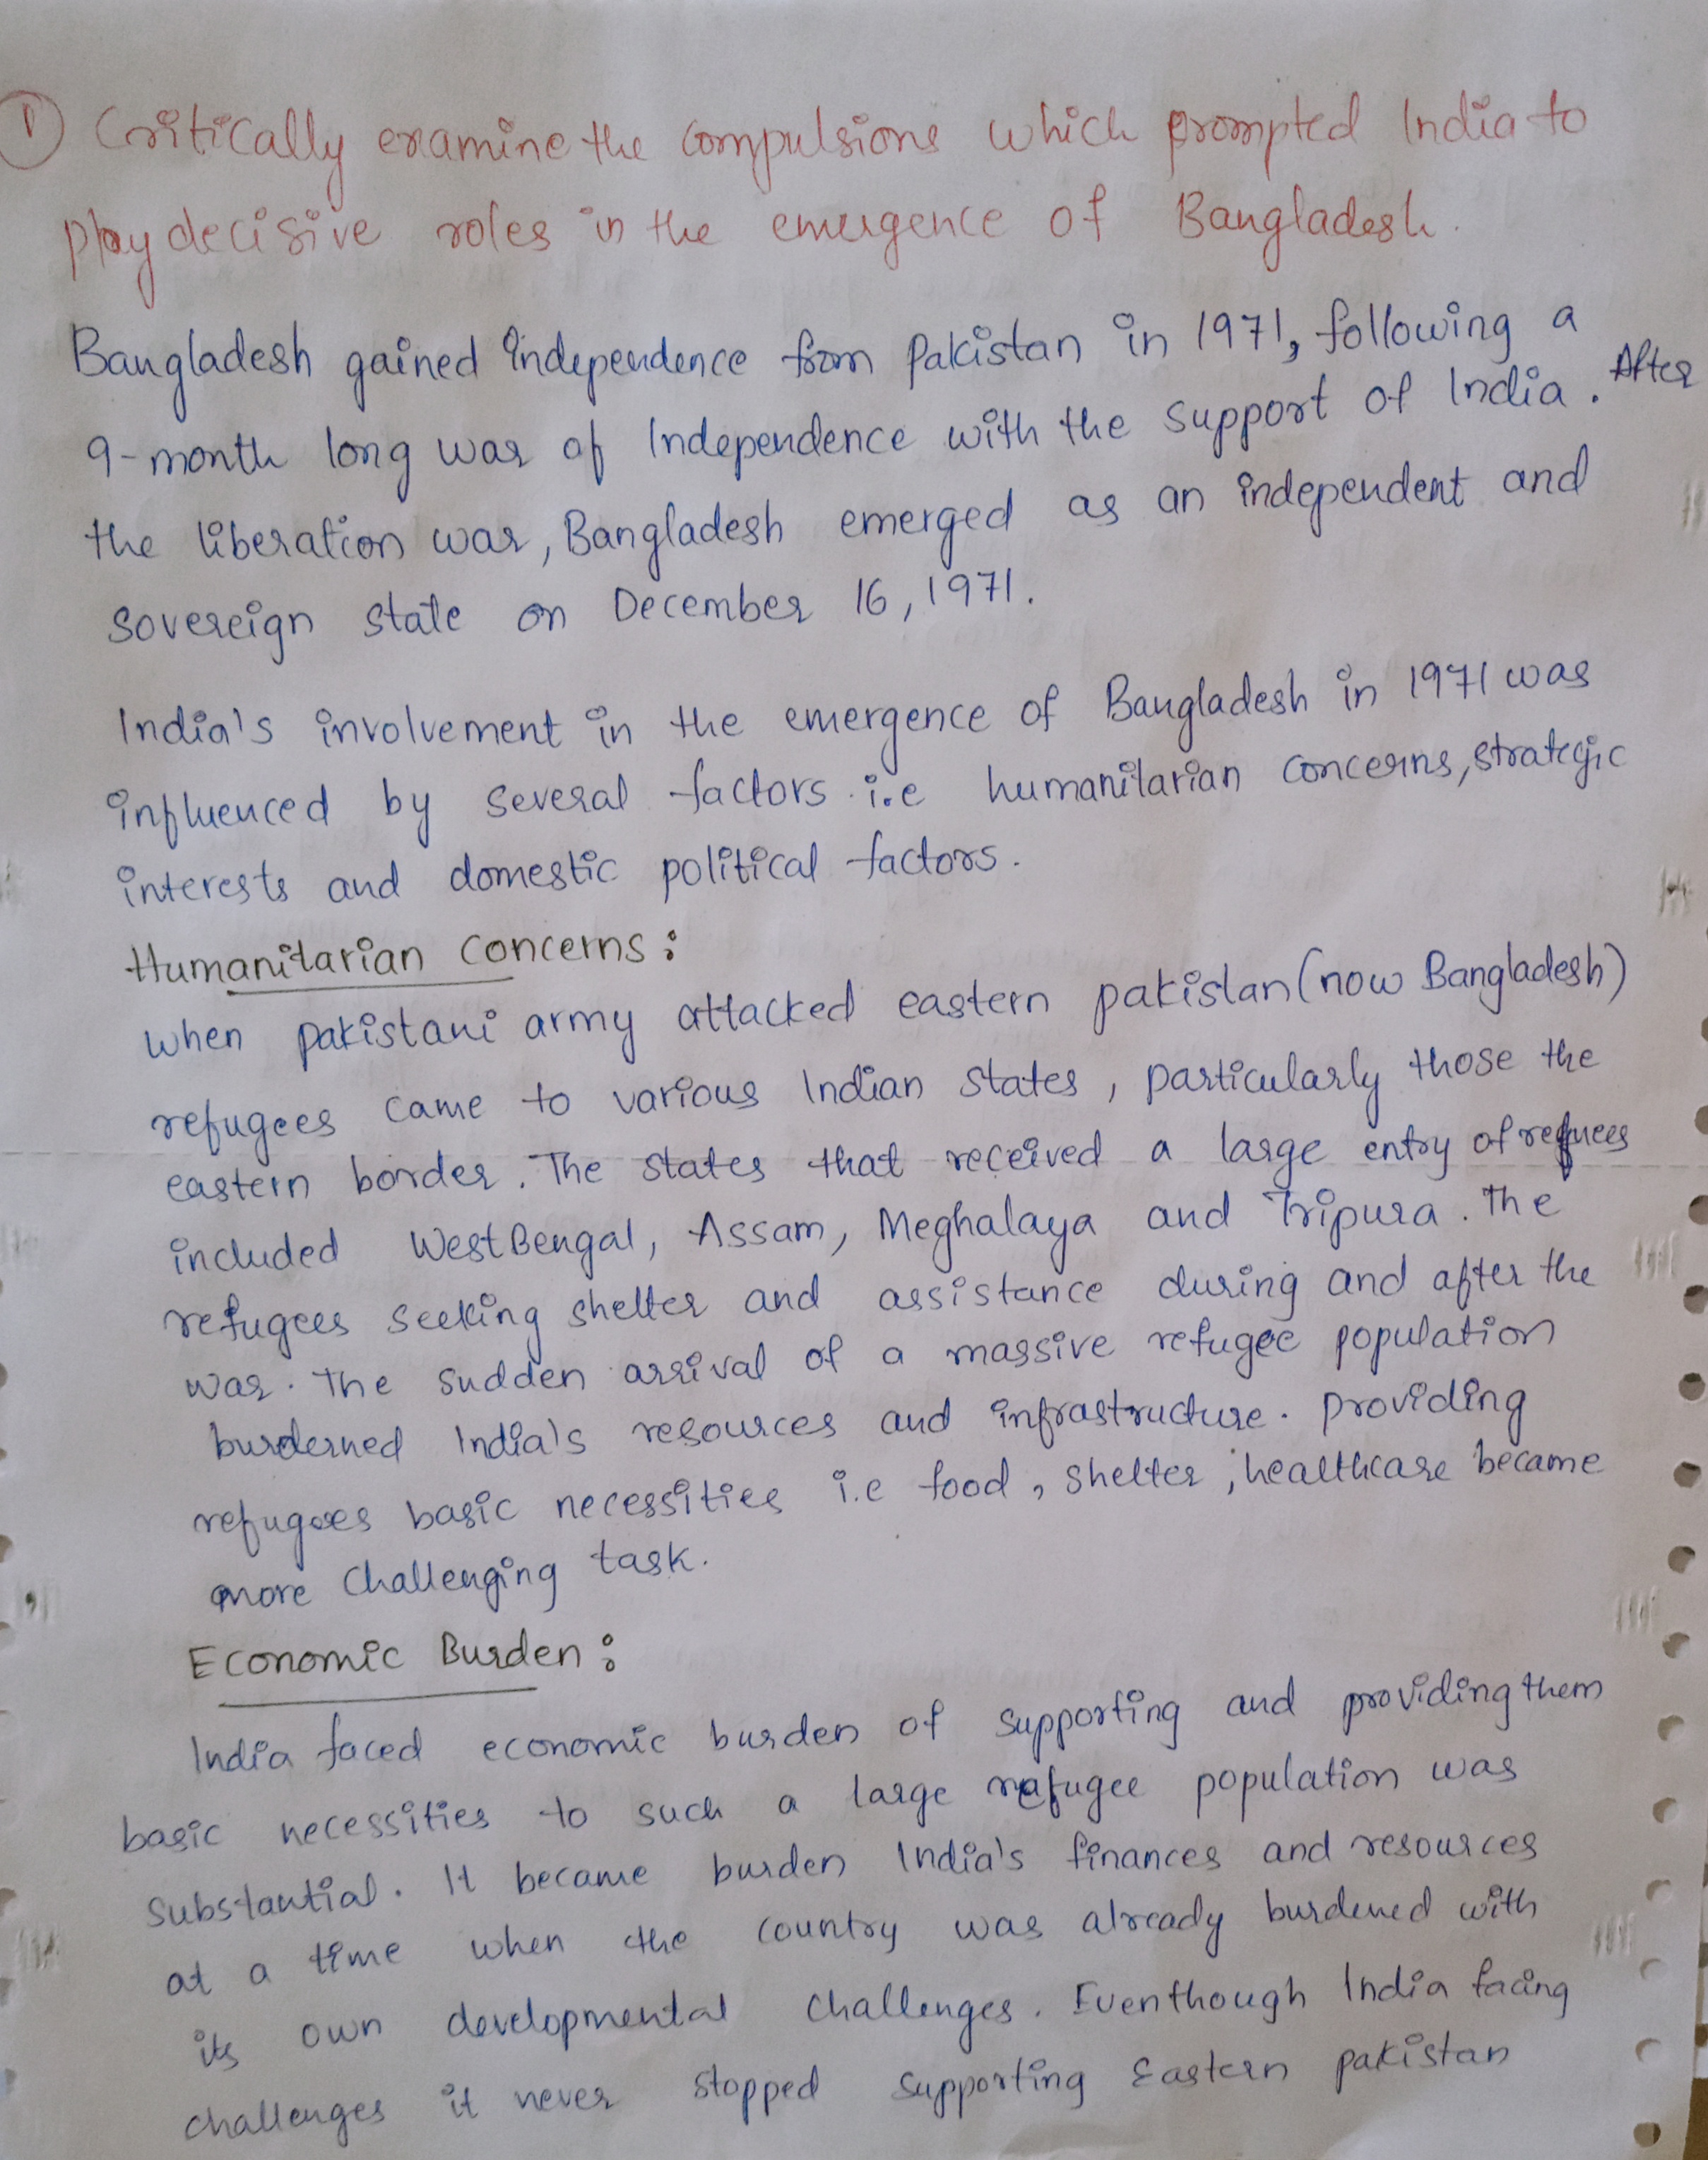 1) Critically examine the compulsions which prompted India to
play decisive roles in the emergence of Bangladesh.
Bangladesh gained independence from Pakistan in 1971, following a
9-month long war of Independence with the support of India. After
the liberation war, Bangladesh emerged as an independent and
sovereign state on December 16, 1971.
India's involvement in the emergence of Bangladesh in 1971 was
influenced by several factors i.e humanitarian concerns, strategic
interests and domestic political factors.
Humanitarian concerns:
When pakistani army attacked eastern pakistan (now Bangladesh)
refugees came to various Indian states, particularly those the
eastern border. The states that received a large entry of refuees
included West Bengal, Assam, Meghalaya and Tripura. The
refugees seeking shelter and assistance during and after the
war. The sudden arrival of a massive refugee population
burderned India's resources and infrastructure. Providing
refugees basic necessities i.e food, shelter, healthcare became
more challenging task.
Economic Burden:
India faced economic burden of supporting and providing them
basic necessities to such a large refugee population was
substantial. It became burden India's finances and resources
at a time when the country was already burdened with
its own developmental challenges. Eventhough India facing
challenges it never stopped supporting Eastern pakistan